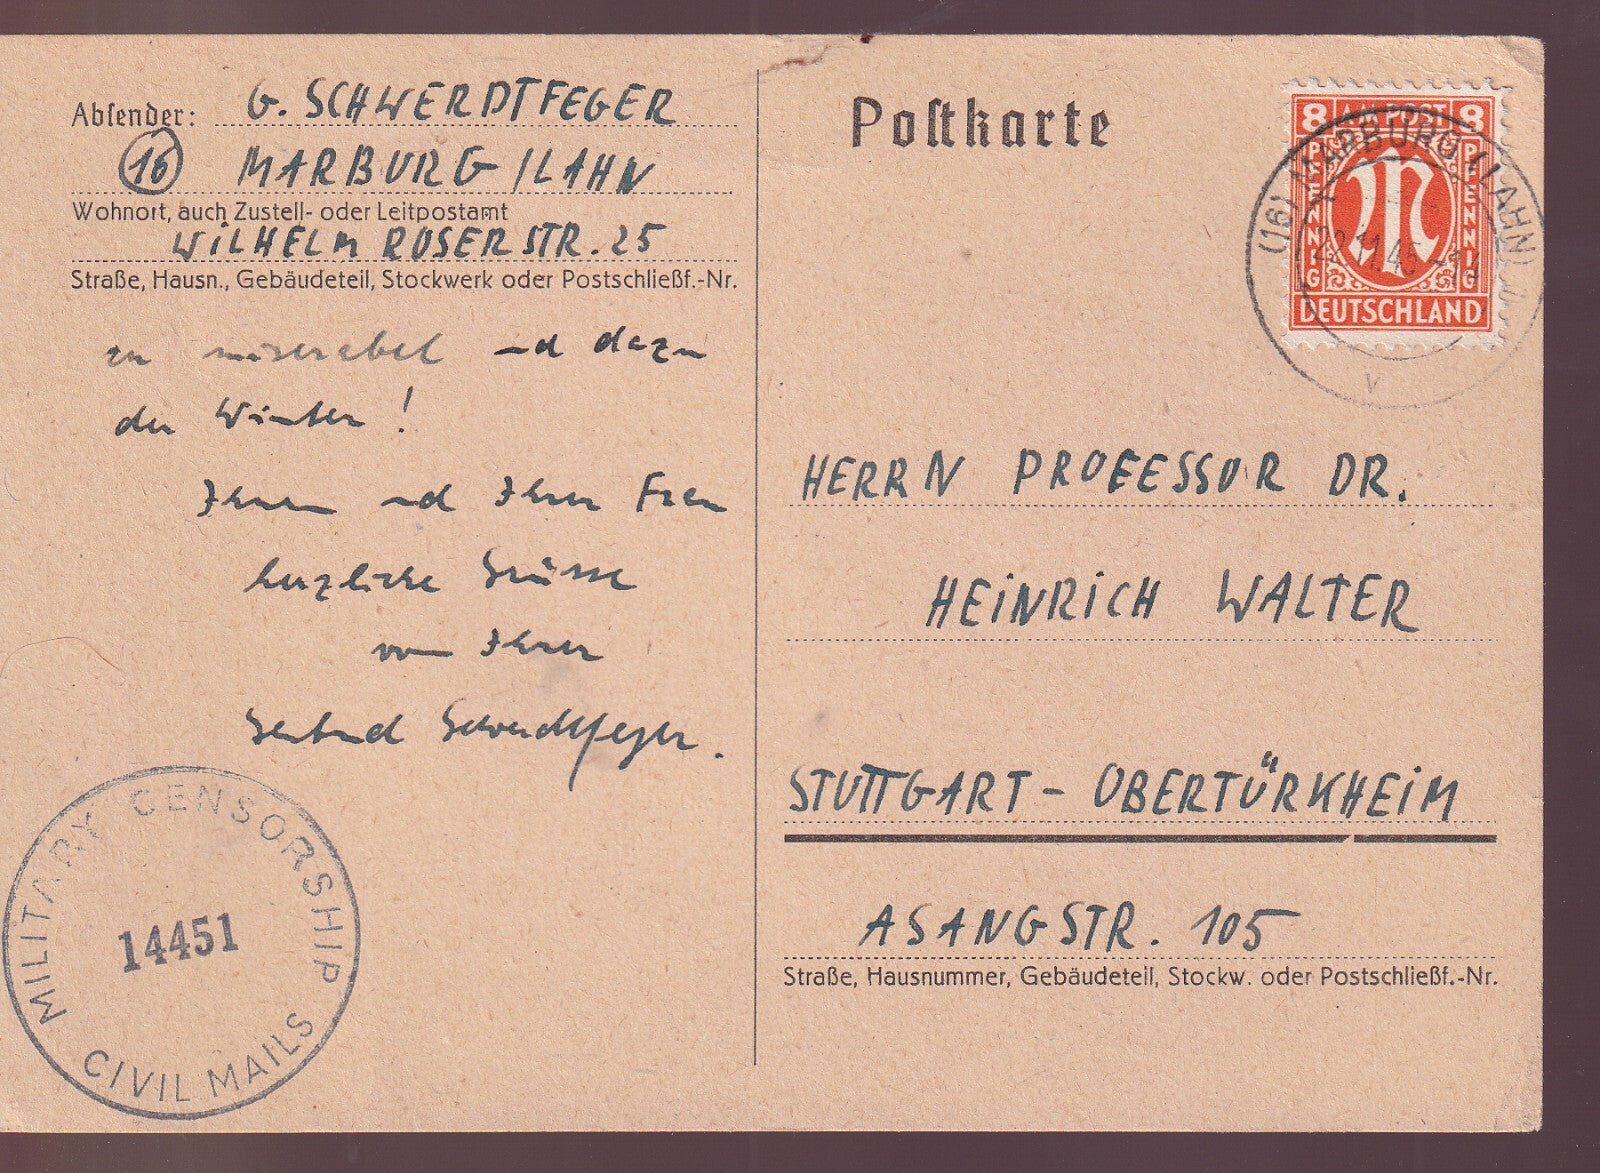 Absender: G. SCHWERDTFEGER
16 MARBURG/LAHN
Wohnort, auch Zustell- oder Leitpostamt
WILHELM ROSERSTR. 25
Straße, Hausn., Gebäudeteil, Stockwerk oder Postschließf.-Nr.
zu miserabel und dazu
der Winter!
Ihnen und Ihrer Frau
herzliche Grüsse
von Ihrer
Gertrud Schwerdtfeger.
MILITARY CENSORSHIP
14451
CIVIL MAILS
Postkarte
8 AM POST 8
PFENNIG PFENNIG
M
DEUTSCHLAND
(16) MARBURG (LAHN)
22.11.45
V
HERRN PROFESSOR DR.
HEINRICH WALTER
STUTTGART - OBERTÜRKHEIM
ASANGSTR. 105
Straße, Hausnummer, Gebäudeteil, Stockw. oder Postschließf.-Nr.